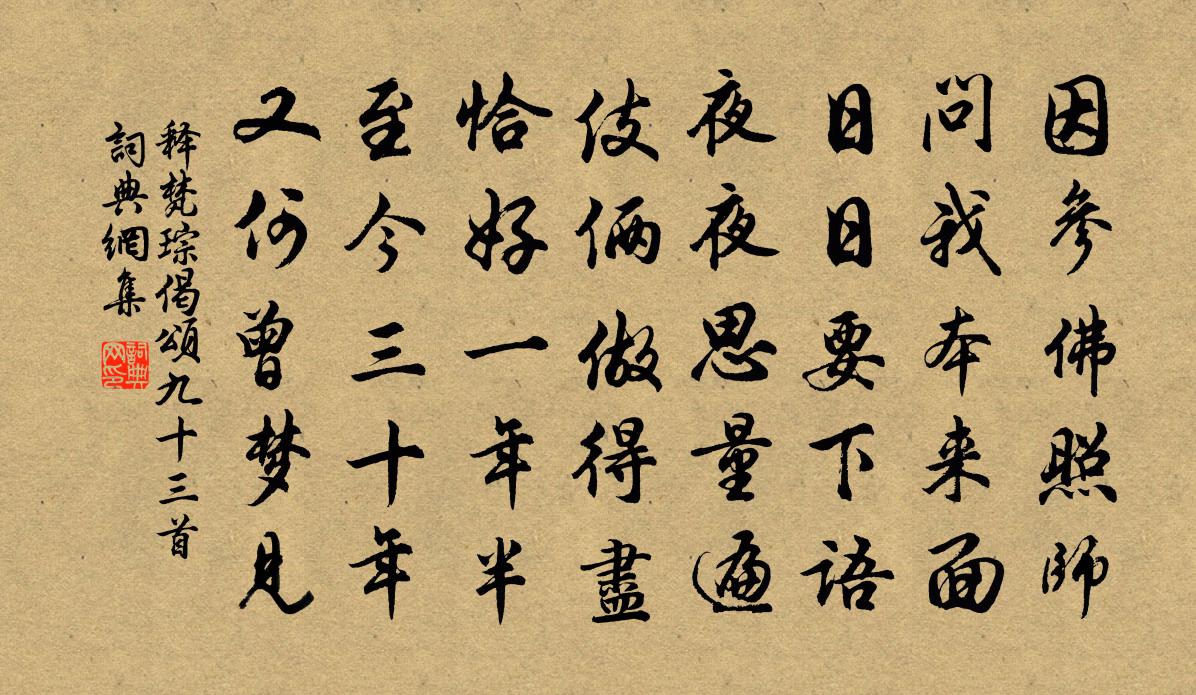 因參佛照師
問我本来面
日日要下語
夜夜思量遍
伎倆做得盡
恰好一年半
至今三十年
又何曾梦見
释梵琮偈頌九十三首
詞典網集
詞典网印